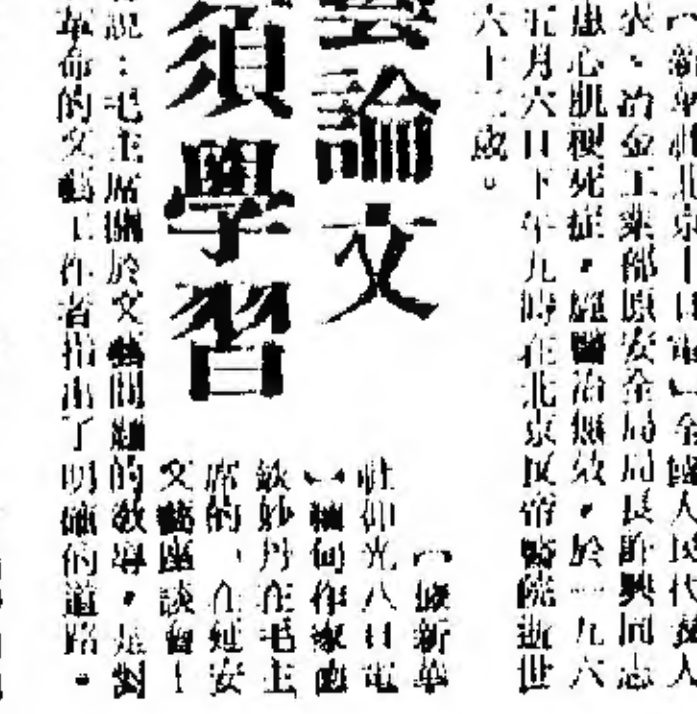 （新華社北京十日電）全國人民代表人
表、冶金工業部原安全局局長許興同志
患心肌梗死症，經醫治無效，於一九六
五月六日下午九時在北京反帝醫院逝世
六十二歲。
藝論文
須學習
（據新華
社仰光八日電
）緬甸作家曲
欽妙丹在毛主
席的《在延安
文藝座談會！
說：毛主席關於文藝問題的教導，是對
革命的文藝工作者指出了明確的道路。